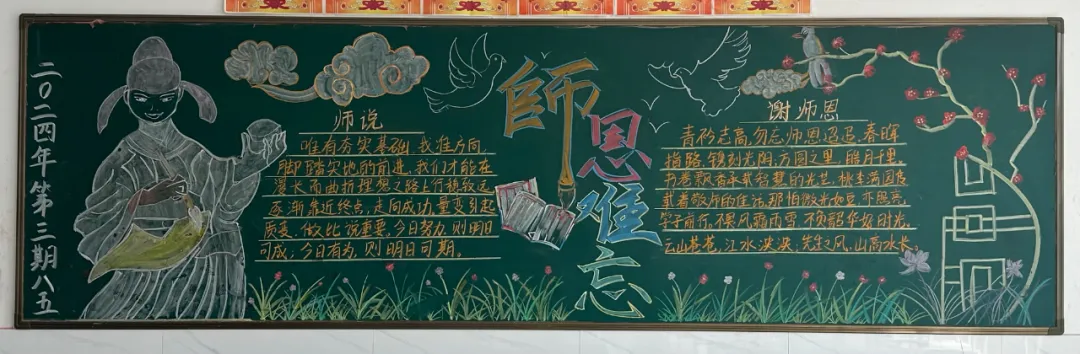 二〇二四年第三期八五
师说
唯有夯实基础，找准方向，
脚踏实地的前进，我们才能在
漫长而曲折理想之路上行稳致远，
逐渐靠近终点，走向成功量变引起
质变，做比说重要，今日努力，则明日
可成；今日有为，则明日可期。
師恩难忘
谢师恩
青衿志高，勿忘师恩迢迢，春晖
指路，镂刻光阴，方圆之里，皓月千里，
书卷飘香承载智慧的光芒，桃李满园
载着敬师的佳话，那怕微光如豆，亦愿亮
学子前行，不畏风霜雨雪，不负韶华好时光，
云山苍苍，江水泱泱，先生之风，山高水长。